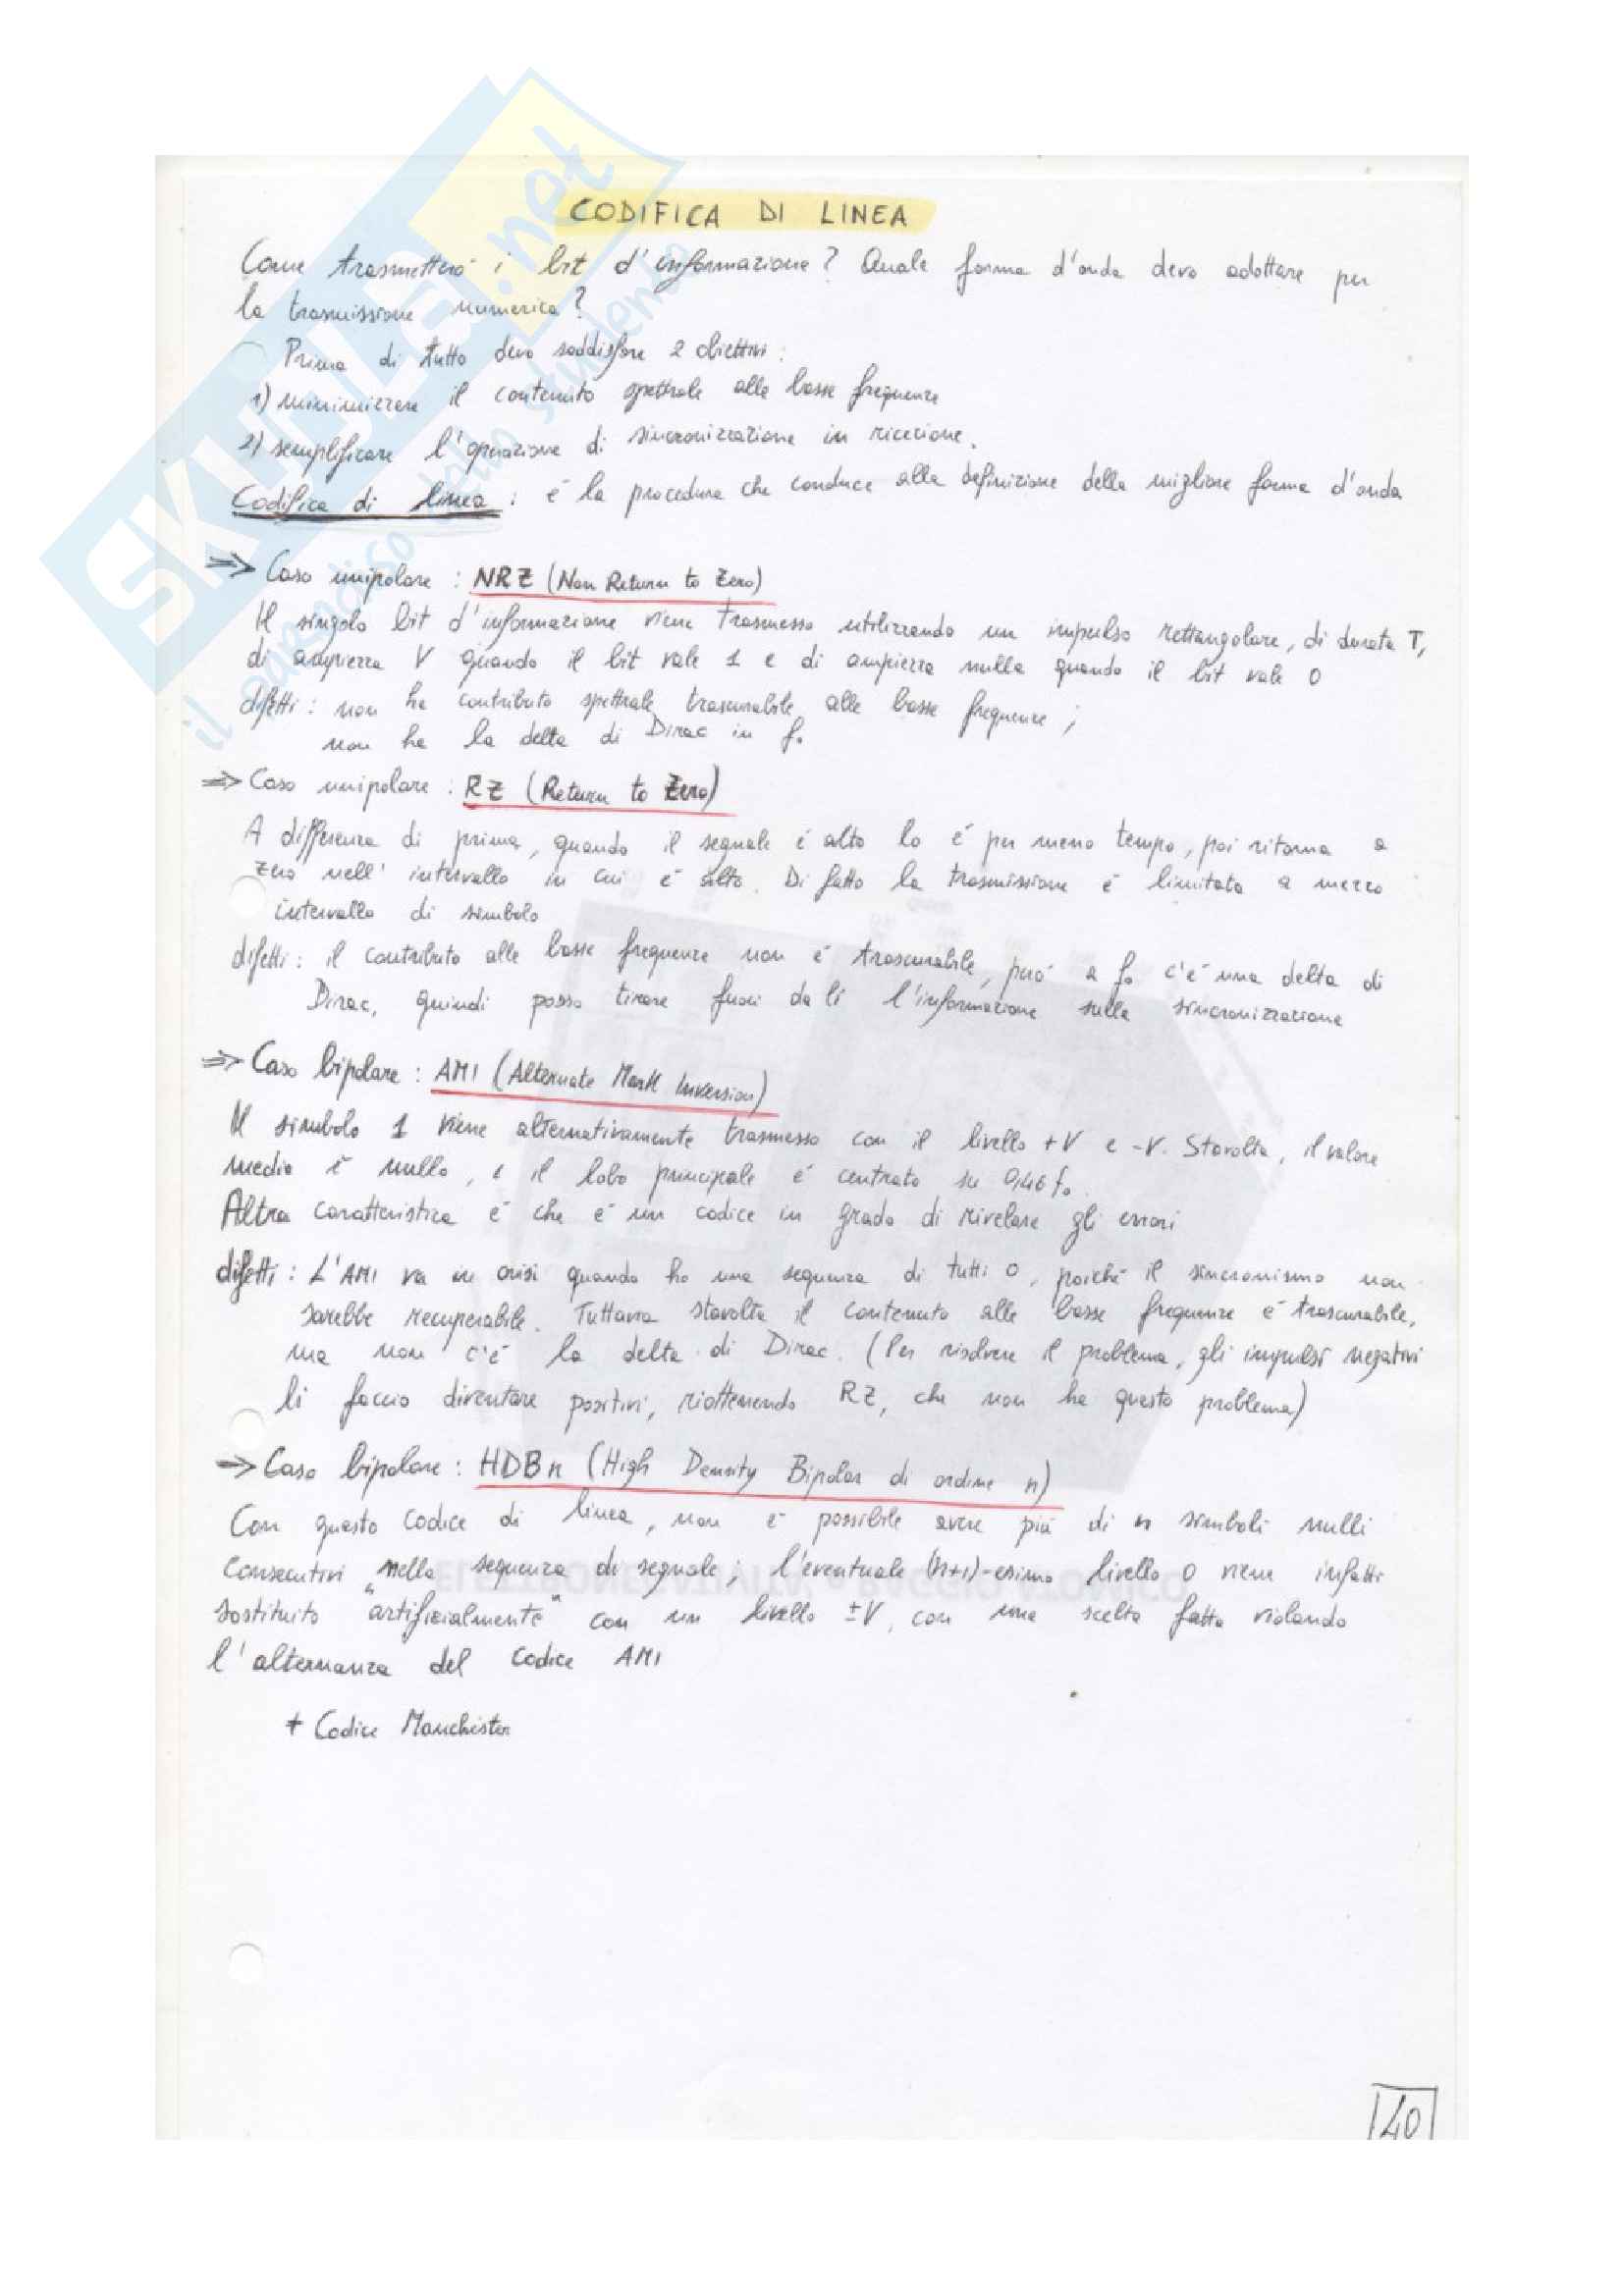 CODIFICA DI LINEA
Come trasmetterò i bit d'informazione? Quale forma d'onda devo adottare per
la trasmissione numerica?
Prima di tutto devo soddisfare 2 obiettivi:
1) minimizzare il contenuto spettrale alle basse frequenze
2) semplificare l'operazione di sincronizzazione in ricezione.
Codifica di linea: è la procedura che conduce alla definizione della migliore forma d'onda
=> Caso unipolare: NRZ (Non Return to Zero)
Il singolo bit d'informazione viene trasmesso utilizzando un impulso rettangolare, di durata T,
di ampiezza V quando il bit vale 1 e di ampiezza nulla quando il bit vale 0
difetti: non ha contributo spettrale trascurabile alle basse frequenze;
non ha la delta di Dirac in f₀
=> Caso unipolare: RZ (Return to Zero)
A differenza di prima, quando il segnale è alto lo è per meno tempo, poi ritorna a
zero nell'intervallo in cui è alto. Di fatto la trasmissione è limitata a mezzo
intervallo di simbolo
difetti: il contributo alle basse frequenze non è trascurabile, però a f₀ c'è una delta di
Dirac, quindi posso tirare fuori da lì l'informazione sulla sincronizzazione
=> Caso bipolare: AMI (Alternate Mark Inversion)
Il simbolo 1 viene alternativamente trasmesso con il livello +V e -V. Stavolta, il valore
medio è nullo, e il lobo principale è centrato su 0,46 f₀.
Altra caratteristica è che è un codice in grado di rivelare gli errori
difetti: L'AMI va in crisi quando ho una sequenza di tutti 0, poiché il sincronismo non
sarebbe recuperabile. Tuttavia stavolta il contenuto alle basse frequenze è trascurabile,
ma non c'è la delta di Dirac. (Per risolvere il problema, gli impulsi negativi
li faccio diventare positivi, riottenendo RZ, che non ha questo problema)
=> Caso bipolare: HDBn (High Density Bipolar di ordine n)
Con questo codice di linea, non è possibile avere più di n simboli nulli
consecutivi nella sequenza di segnale; l'eventuale (n+1)-esimo livello 0 viene infatti
sostituito "artificialmente" con un livello ±V, con una scelta fatta violando
l'alternanza del codice AMI
+ Codice Manchester
40
SKUOLA.net
il paradiso dello studente